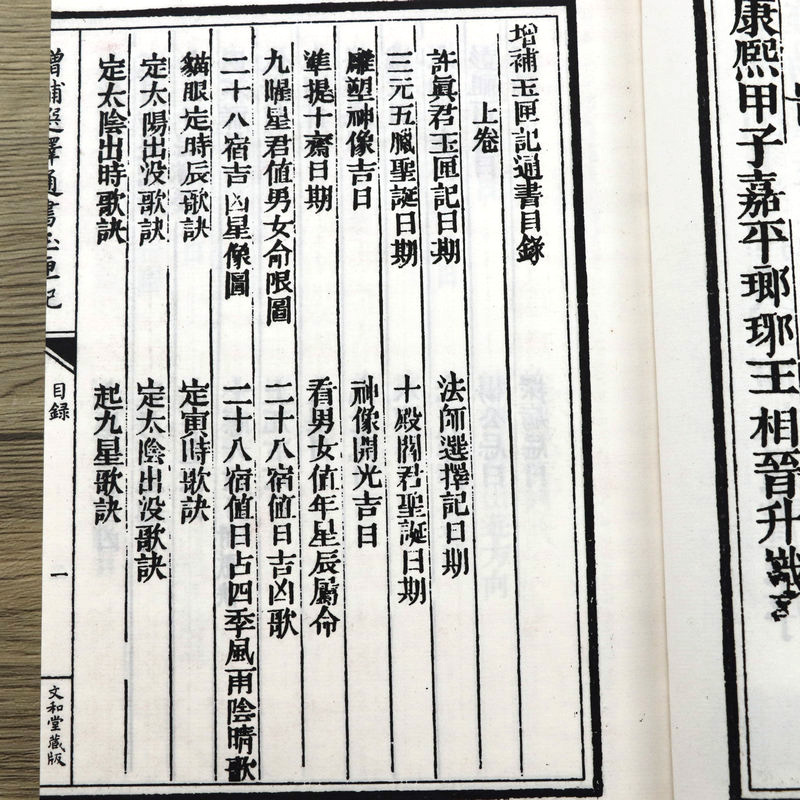 康熙甲子嘉平瑯琊王相晉升識
增補玉匣記通書目錄
上卷
許眞君玉匣記日期 法師選擇記日期
三元五臘聖誕日期 十殿閻君聖誕日期
雕塑神像吉日 神像開光吉日
準提十齋日期 看男女值年星辰屬命
九曜星君值男女命限圖 二十八宿值日吉凶歌
二十八宿吉凶星像圖 二十八宿值日占四季風雨陰晴歌
貓眼定時辰歌訣 定寅時歌訣
定太陽出没歌訣 定太陰出没歌訣
定太陰出時歌訣 起九星歌訣
增補選擇通書玉匣記
目錄
一
文和堂藏版